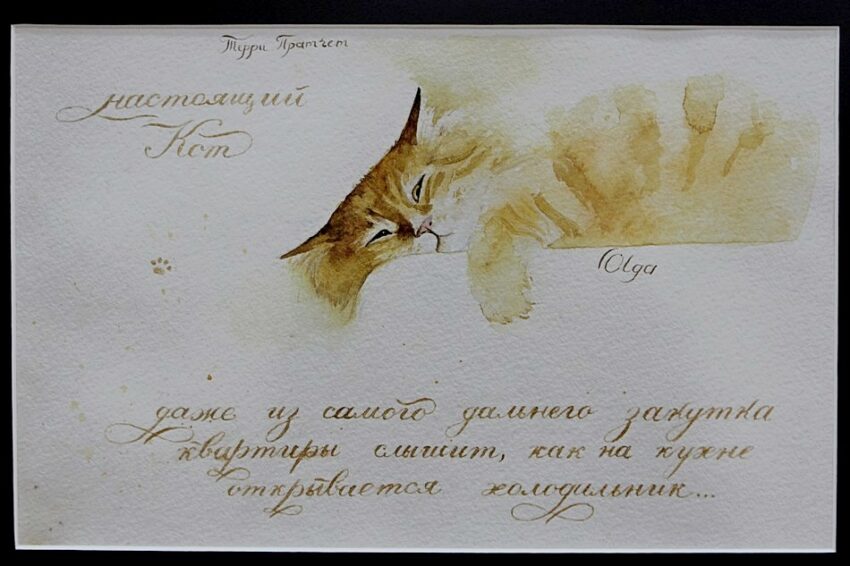 Терри Пратчет
настоящий
Кот
Olga
даже из самого дальнего закутка
квартиры слышит, как на кухне
открывается холодильник...